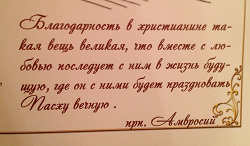 Благодарность в христианине та-
кая вещь великая, что вместе с лю-
бовью последует с ним в жизнь буду-
щую, где он с ними будет праздновать
Пасху вечную .
прп. Амвросий